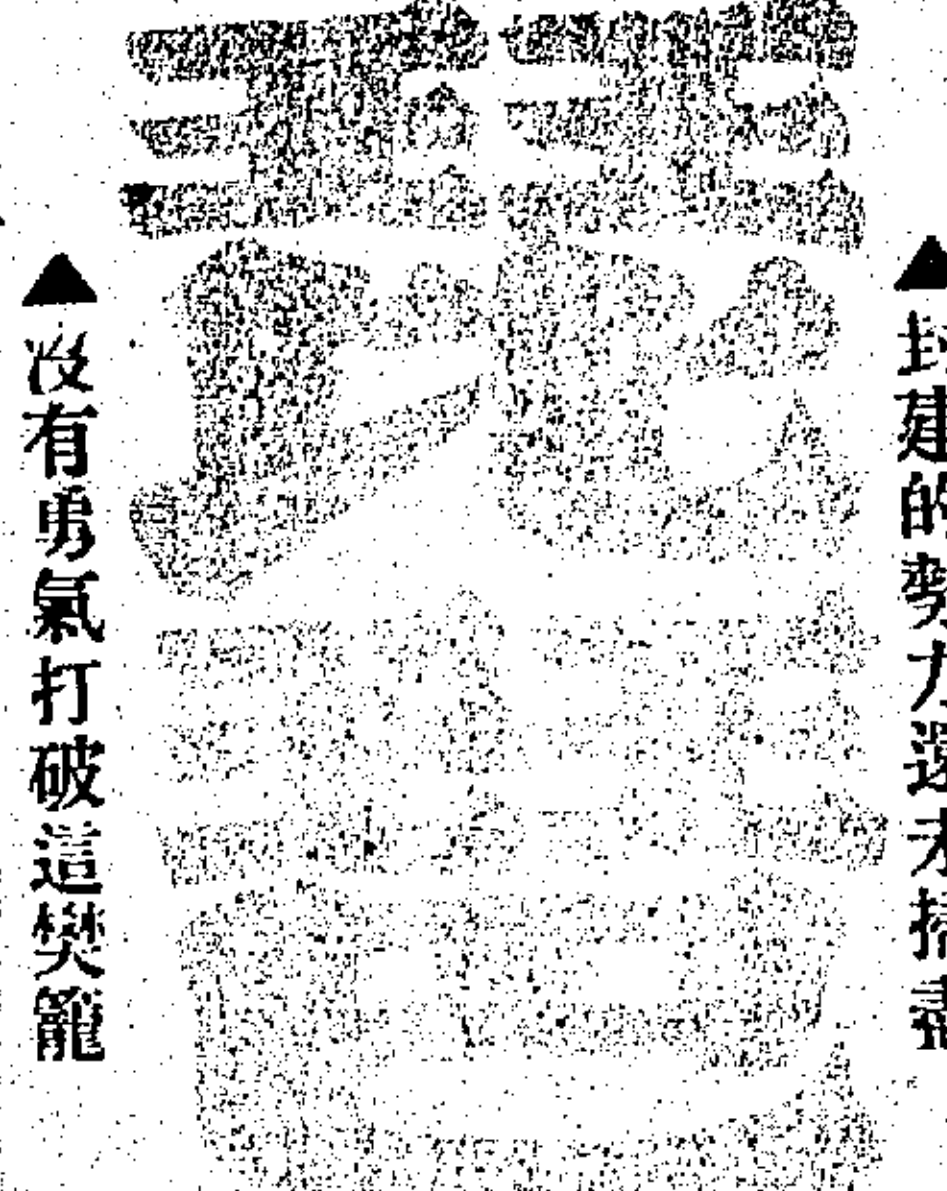 ▲封建的勢力還未掃盡
琵琶
▲沒有勇氣打破這樊籠